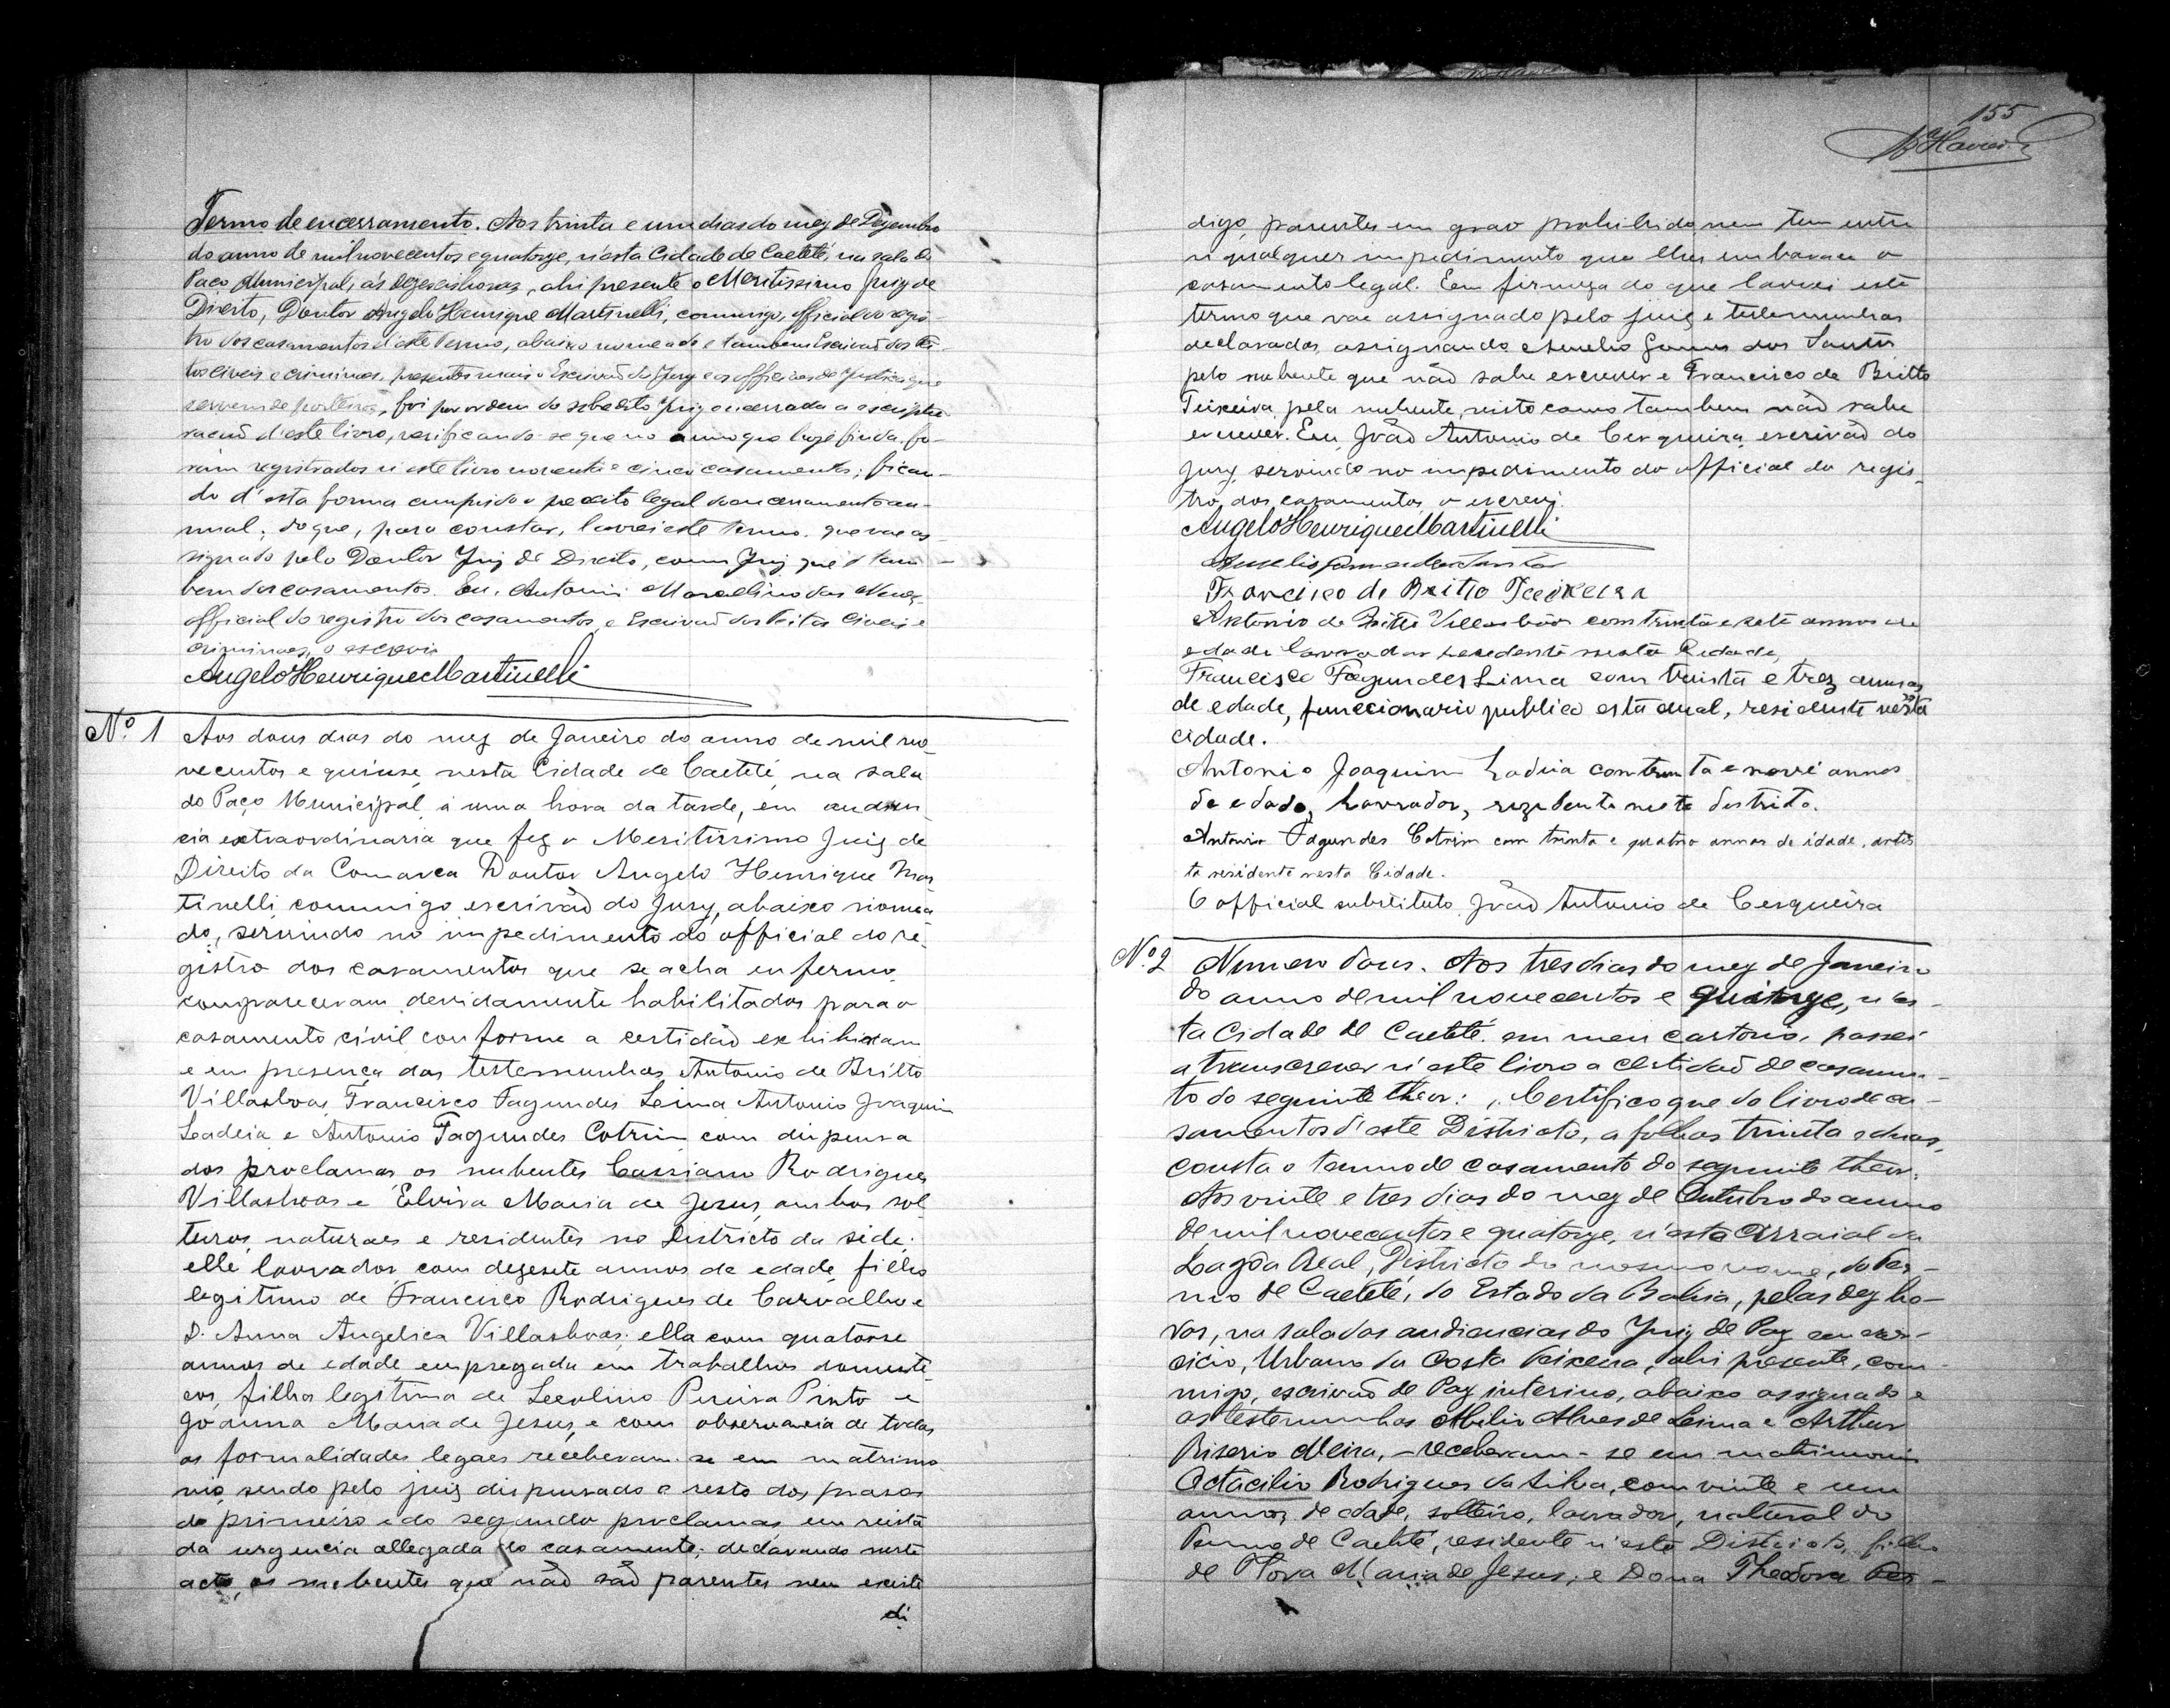 Termo de encerramento. Aos trinta e um dias do mez de Dezembro
do anno de mil novecentos e quatorze, n'esta Cidade de Caeteté, na sala do
Paço Municipal, ás dezeseis horas, ahi presente o Meritissimo Juiz de
Direito, Doutor Angelo Henrique Martinelli, commigo, official do regis-
tro dos casamentos d'este Termo, abaixo nomeado e tambem Escrivaõ dos fei-
tos civeis e criminaes, presentes mais o Escrivaõ do Jury e os officiaes de Justiça que
servem de porteiros, foi por ordem do sobredito Juiz encerrada a escriptu-
raçaõ d'este livro, verificando-se que no anno que hoje finda, fo-
ram registrados n'este livro noventa e cinco casamentos; fican-
do d'esta forma cumprido o preceito legal do encerramento an-
nual; do que, para constar, lavrei este termo, que vae as-
signado pelo Doutor Juiz de Direito, como Juiz que é tam-
bem dos casamentos. Eu, Antonio Marcellino das Neves,
official do registro dos casamentos e Escrivaõ dos Feitos Civeis e
criminaes, o escrevi.
Angelo Henrique Martinelli
Nº 1 Aos dous dias do mez de Janeiro do anno de mil no
vecentos e quinse, nesta Cidade de Caeteté, na sala
do Paço Municipal, á uma hora da tarde, em audien
cia extraordinaria que fez o Meritissimo Juiz de
Direito da Comarca Doutor Angelo Henrique Mar
tinelli, commigo escrivão do Jury, abaixo nomea
do, servindo no impedimento do official do re-
gistro dos casamentos que se acha enfermo,
compareceram, devidamente habilitados para o
casamento civil conforme a certidão exhibiram
e em presença das testemunhas Antonio de Britto
Villasboas, Francisco Fagundes Leima, Antonio Joaquim
Ladeia e Antonio Fagundes Cotrim com dispensa
dos proclamas os nubentes Cassiano Rodrigues
Villasboas e Elvira Maria de Jesus, ambos sol
teiros, naturaes e residentes no Districto da séde;
elle lavrador, com dezesete annos de edade, filho
legitimo de Francisco Rodrigues de Carvalho e
D. Anna Angelica Villasboas; ella com quatorse
annos de edade, empregada em trabalhos domesti-
cos, filha legitima de Leolino Pereira Pinto e
Joanna Maria de Jesus, e com observancia de todas
as formalidades legaes receberam-se em matrimo
nio, sendo pelo juiz dispensado o resto dos prasos
do primeiro e do segundo proclamas em vista
da urgencia allegada do casamento; declarando neste
acto, os nubentes que não são parentes nem existe
di
155
digo, parentes em grao prohibido nem tem entre
si qualquer impedimento que lhes embarace o
casamento legal. Em firmeza do que lavrei este
termo que vae assignado pelo juiz e testemunhas
declaradas, assignando Aurelio Gomes dos Santos
pelo nubente que não sabe escrever e Francisco de Britto
Teixeira pela nubente, visto como tambem não sabe
escrever. Eu, João Antonio de Cerqueira, escrivão do
Jury, servindo no impedimento do official do regis-
tro dos casamentos, o escrevi.
Angelo Henrique Martinelli
Aurelio Gomes dos Santos
Francisco de Britto Teixeira
Antonio de Britto Villasbôas com trinta e sete annos de
edade lavrador residente nesta Cidade,
Francisco Fagundes Lima com trinta e trez annos
de edade, funccionario publico estadual, residente nesta
cidade.
Antonio Joaquim Ladeia com trinta e nove annos
de edade, Lavrador, rezidente neste destrito.
Antonio Fagundes Cotrim com trinta e quatro annos de idade, artis
ta residente nesta Cidade.
O official substituto João Antonio de Cerqueira
Nº 2 Numero dous. Aos tres dias do mez de Janeiro
do anno de mil novecentos e quinze, n'es-
ta Cidade de Caeteté, em meu cartorio, passei
a transcrever n'este livro a certidaõ de casamen-
to do seguinte theor: Certifico que do livro de ca-
samentos d'este Districto, a folhas trinta e duas,
consta o termo de casamento do seguinte theor:
Aos vinte e tres dias do mez de Outubro do anno
de mil novecentos e quatorze, n'este Arraial da
Lagôa Real, Districto do mesmo nome, do Ter-
mo de Caeteté, do Estado da Bahia, pelas dez ho-
ras, na sala das audiencias do Juiz de Paz em exer-
cicio, Urbano da Costa Teixeira, ahi presente, com-
migo, escrivaõ de Paz interino, abaixo assignado e
as testemunhas Abilio Alves de Leima e Arthur
Riserio Meira, - receberam-se em matrimonio
Octacilio Rodrigues da Silva, com vinte e um
annos de edade, solteiro, lavrador, natural do
Termo de Caeteté, residente n'este Districto, filho
de Maria de Jesus; e Dona Theodora